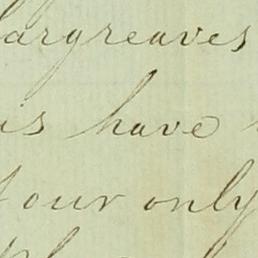 argreaves
is have
our only